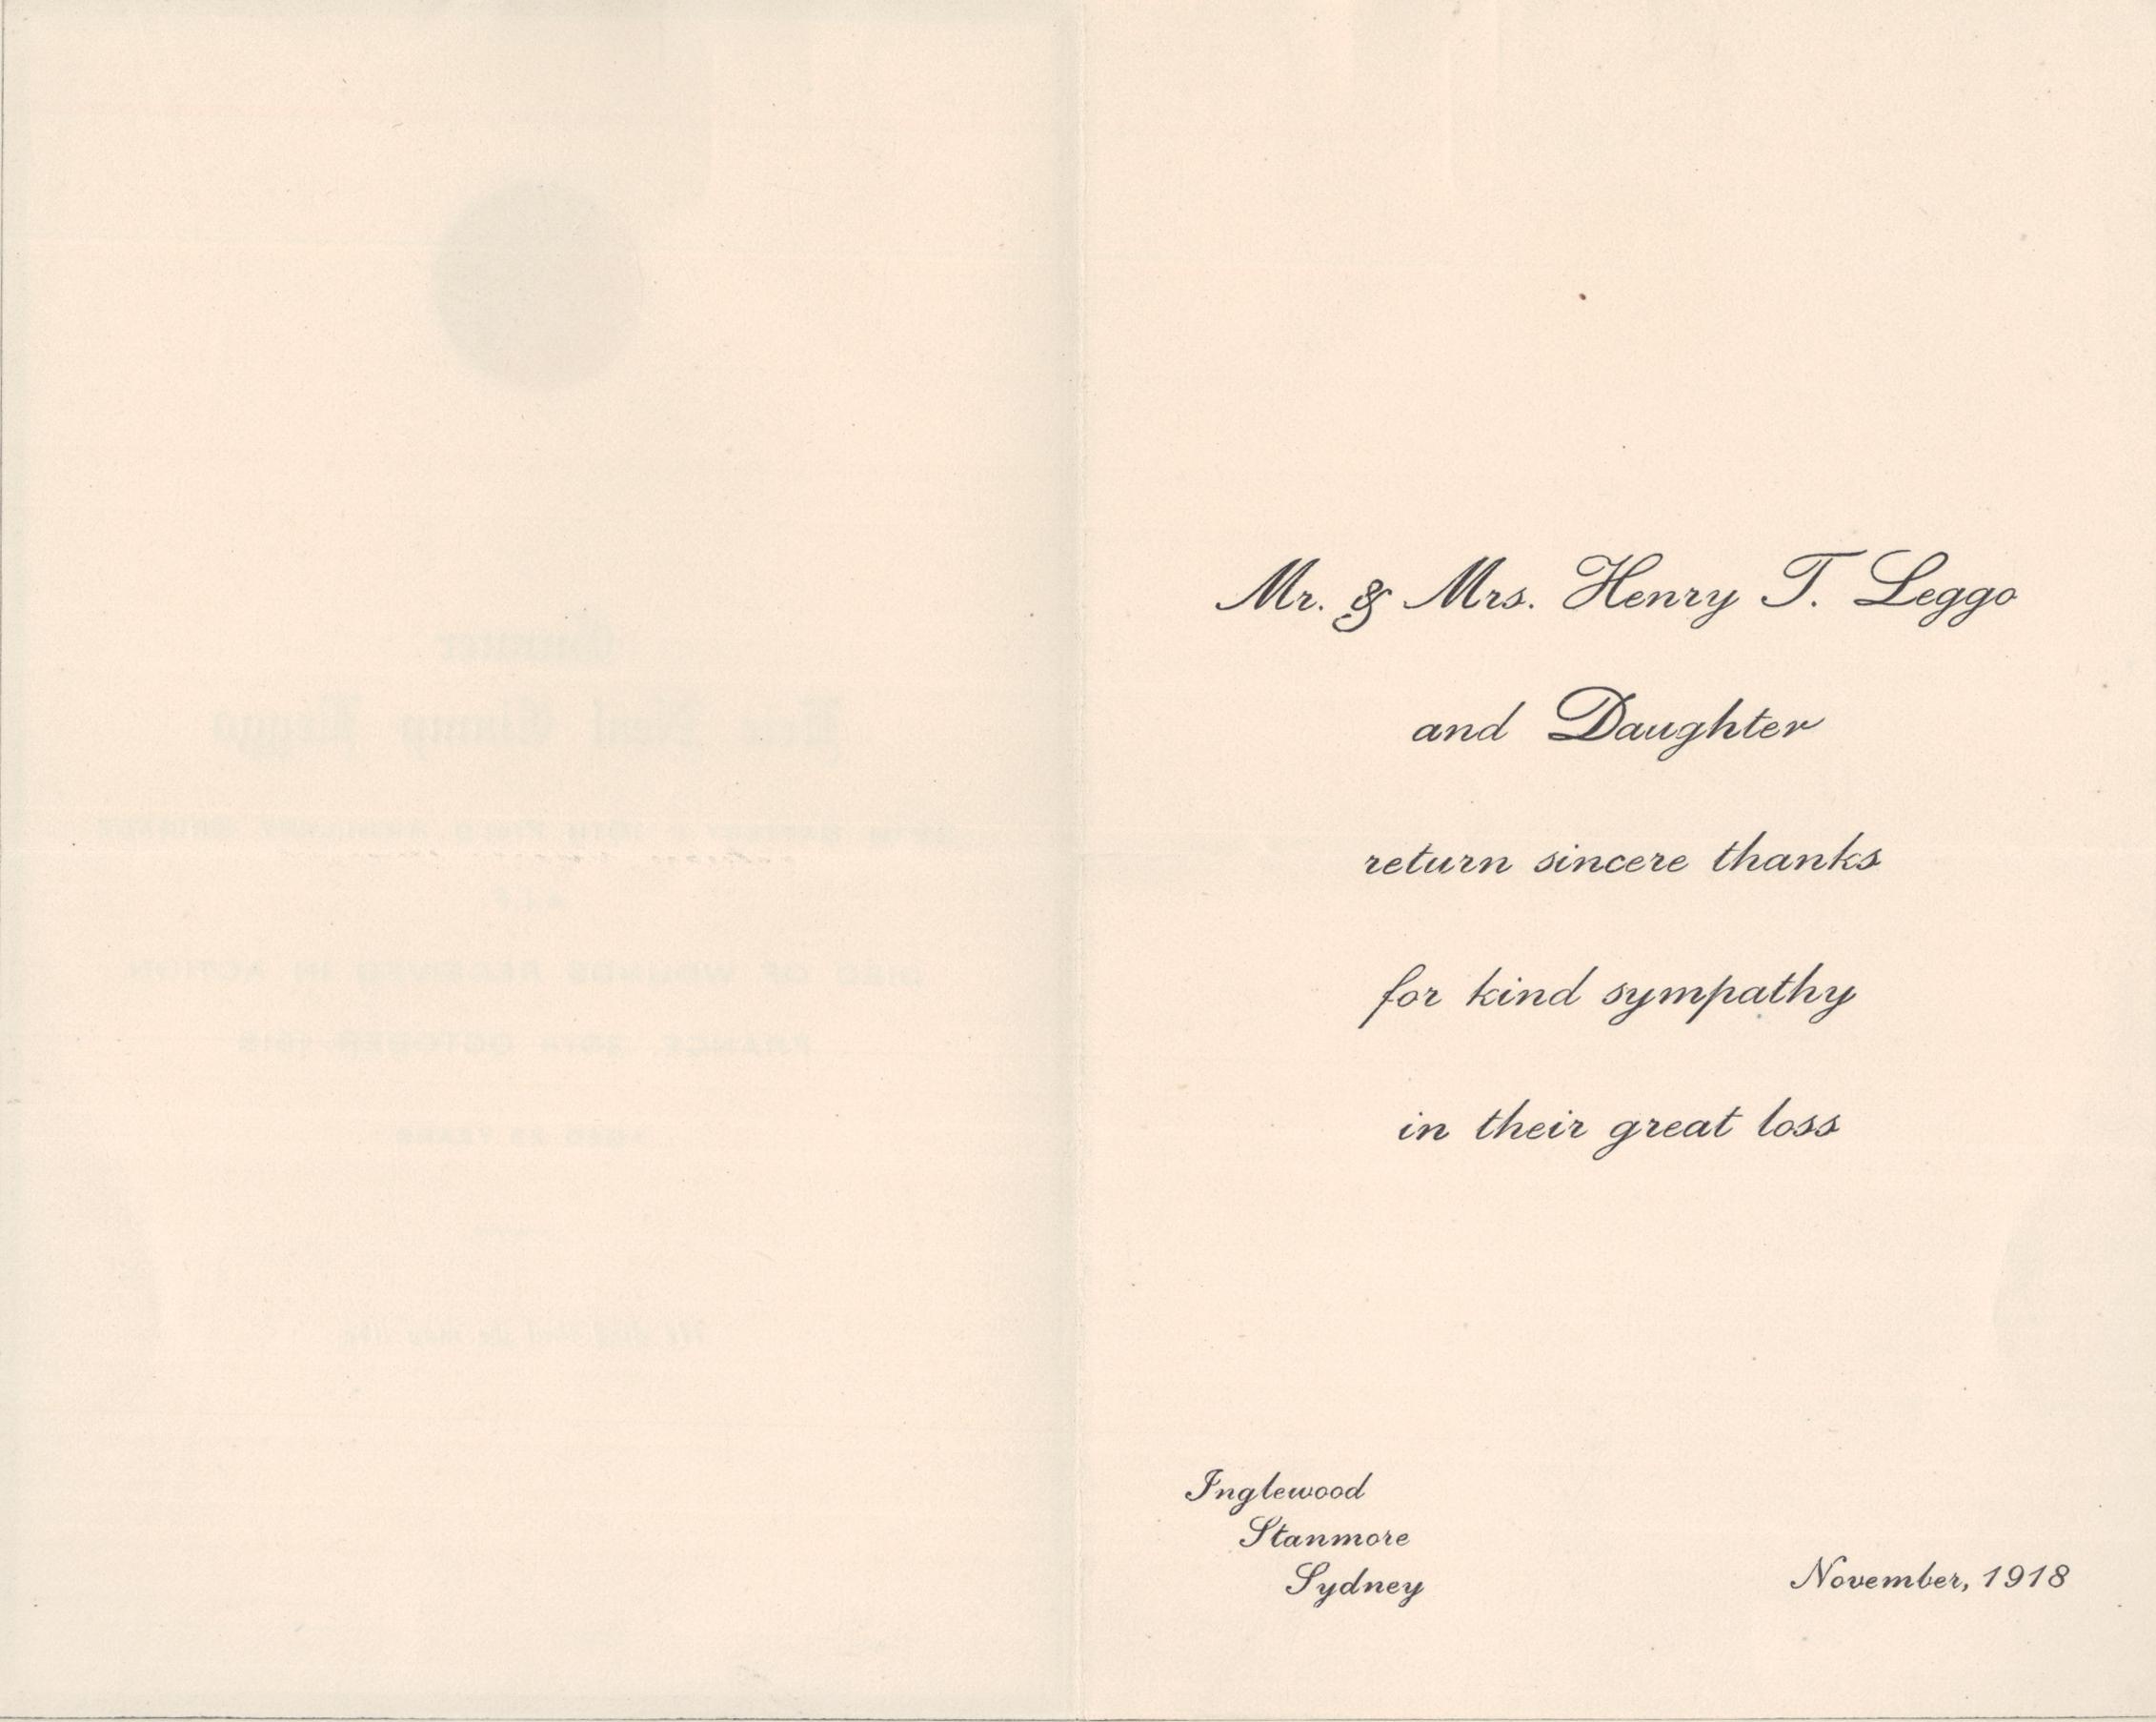 Mr. & Mrs. Henry T. Leggo
and Daughter
return sincere thanks
for kind sympathy
in their great loss
Inglewood
Stanmore
Sydney
November, 1918
DIED OF WOUNDS RECEIVED IN ACTION